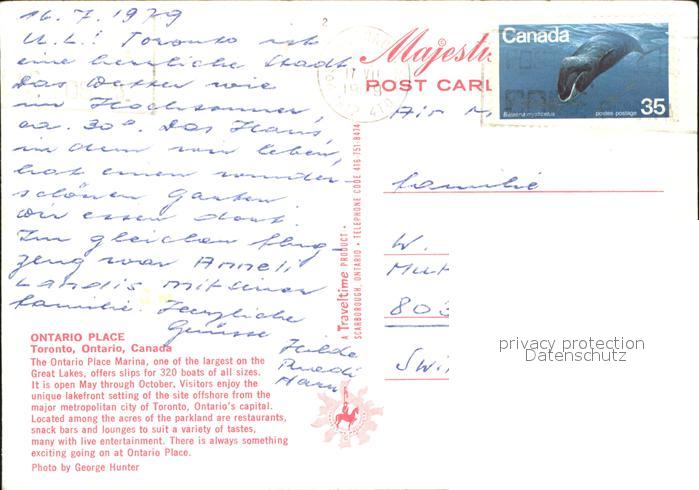 16. 7. 1979
U. L.! Toronto ist
eine herrliche Stadt
Das Wetter wie
im Hochsommer,
ca. 30°. Das Haus,
in dem wir leben,
hat einen wunder-
schönen Garten
wir essen dort.
Im gleichen Flug-
zeug war Anneli
Landis mit ihrer
Familie. Herzliche
Grüsse
Hilde
Ruedi
ONTARIO PLACE
Toronto, Ontario, Canada
The Ontario Place Marina, one of the largest on the
Great Lakes, offers slips for 320 boats of all sizes.
It is open May through October. Visitors enjoy the
unique lakefront setting of the site offshore from the
major metropolitan city of Toronto, Ontario's capital.
Located among the acres of the parkland are restaurants,
snack bars and lounges to suit a variety of tastes,
many with live entertainment. There is always something
exciting going on at Ontario Place.
Photo by George Hunter
A Traveltime PRODUCT •
SCARBOROUGH, ONTARIO • TELEPHONE CODE 416-751-8474
2
17 VII
Majesti
POST CARD
Canada
Balaena mysticetus
postes postage
35
Air M
Familie
W.
803
Swi
privacy protection
Datenschutz